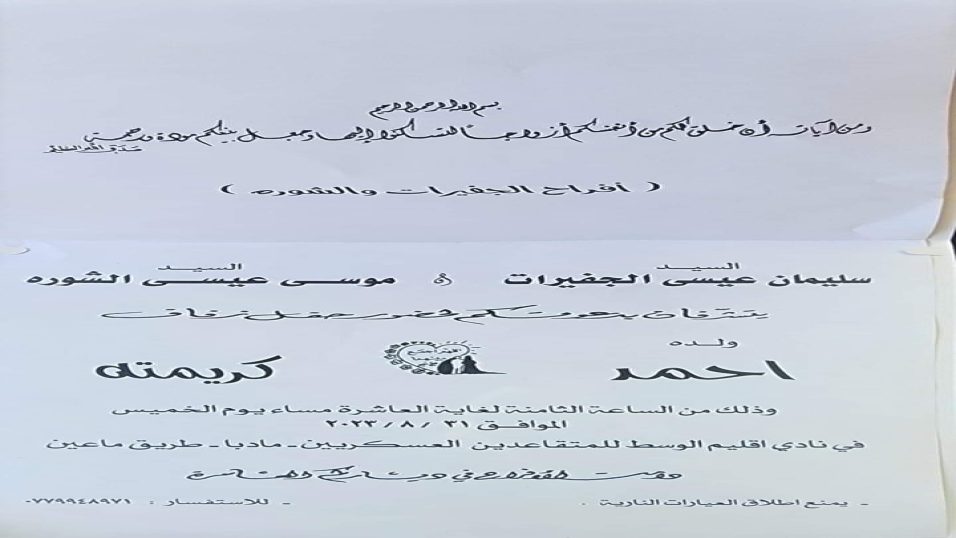 بسم الله الرحمن الرحيم
ومن آياته أن خلق لكم من أنفسكم أزواجا لتسكنوا إليها وجعل بينكم مودة ورحمة
صدق الله العظيم
( أفراح الجفيرات والشوره )
السيد السيد
سليمان عيسى الجفيرات و موسى عيسى الشوره
يتشرفان بدعوتكم لحضور حفل زفاف
ولده
احمد كريمته
وذلك من الساعة الثامنة لغاية العاشرة مساء يوم الخميس
الموافق ٣١ / ٨ / ٢٠٢٣
في نادي اقليم الوسط للمتقاعدين العسكريين - مادبا - طريق ماعين
ودامت الأفراح في دياركم العامرة
- يمنع اطلاق العيارات النارية . - للاستفسار : ٠٧٧٩٩٤٨٩٧١